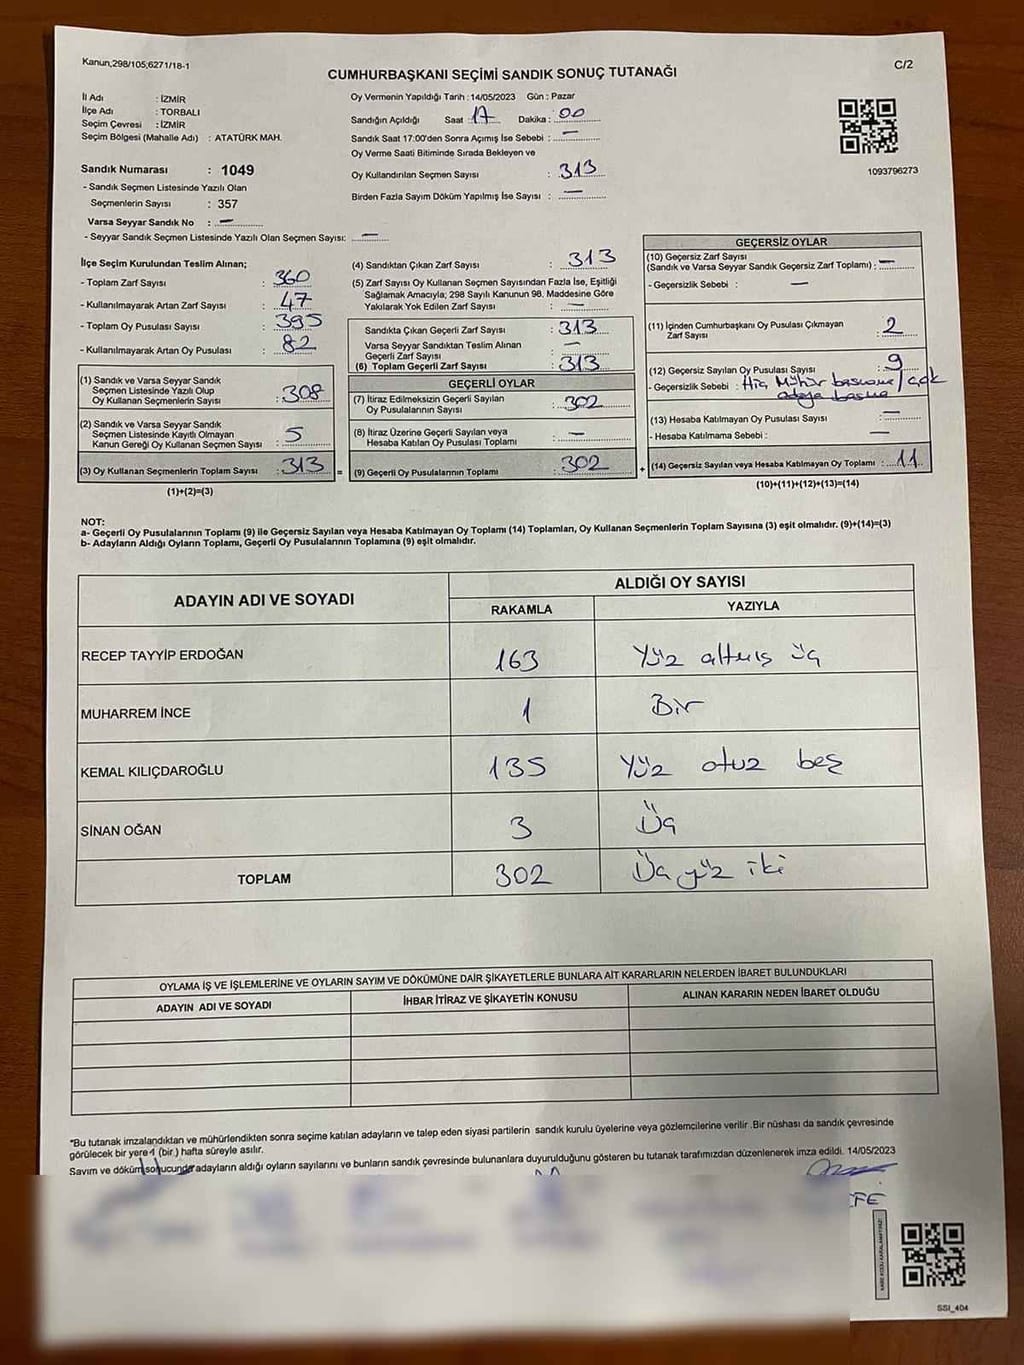 Kanun,298/105;6271/18-1
C/2
CUMHURBAŞKANI SEÇİMİ SANDIK SONUÇ TUTANAĞI
İl Adı : İZMİR
İlçe Adı : TORBALI
Seçim Çevresi : İZMİR
Seçim Bölgesi (Mahalle Adı) : ATATÜRK MAH.
Sandık Numarası : 1049
- Sandık Seçmen Listesinde Yazılı Olan
Seçmenlerin Sayısı : 357
Varsa Seyyar Sandık No : —
- Seyyar Sandık Seçmen Listesinde Yazılı Olan Seçmen Sayısı: —
Oy Vermenin Yapıldığı Tarih : 14/05/2023 Gün : Pazar
Sandığın Açıldığı Saat : 17 Dakika : 00
Sandık Saat 17:00'den Sonra Açımış İse Sebebi : —
Oy Verme Saati Bitiminde Sırada Bekleyen ve
Oy Kullandırılan Seçmen Sayısı : 313
Birden Fazla Sayım Döküm Yapılmış İse Sayısı : —
1093796273
İlçe Seçim Kurulundan Teslim Alınan;
- Toplam Zarf Sayısı : 360
- Kullanılmayarak Artan Zarf Sayısı : 47
- Toplam Oy Pusulası Sayısı : 395
- Kullanılmayarak Artan Oy Pusulası : 82
(1) Sandık ve Varsa Seyyar Sandık
Seçmen Listesinde Yazılı Olup
Oy Kullanan Seçmenlerin Sayısı : 308
(2) Sandık ve Varsa Seyyar Sandık
Seçmen Listesinde Kayıtlı Olmayan
Kanun Gereği Oy Kullanan Seçmen Sayısı : 5
(3) Oy Kullanan Seçmenlerin Toplam Sayısı : 313 =
(1)+(2)=(3)
(4) Sandıktan Çıkan Zarf Sayısı : 313
(5) Zarf Sayısı Oy Kullanan Seçmen Sayısından Fazla İse, Eşitliği
Sağlamak Amacıyla; 298 Sayılı Kanunun 98. Maddesine Göre
Yakılarak Yok Edilen Zarf Sayısı : —
Sandıkta Çıkan Geçerli Zarf Sayısı : 313
Varsa Seyyar Sandıktan Teslim Alınan
Geçerli Zarf Sayısı : —
(6) Toplam Geçerli Zarf Sayısı : 313
GEÇERLİ OYLAR
(7) İtiraz Edilmeksizin Geçerli Sayılan
Oy Pusulalarının Sayısı : 302
(8) İtiraz Üzerine Geçerli Sayılan veya
Hesaba Katılan Oy Pusulası Toplamı : —
(9) Geçerli Oy Pusulalarının Toplamı : 302 +
GEÇERSİZ OYLAR
(10) Geçersiz Zarf Sayısı
(Sandık ve Varsa Seyyar Sandık Geçersiz Zarf Toplamı) : —
- Geçersizlik Sebebi : —
(11) İçinden Cumhurbaşkanı Oy Pusulası Çıkmayan
Zarf Sayısı : 2
(12) Geçersiz Sayılan Oy Pusulası Sayısı : 9
- Geçersizlik Sebebi : Hiç Mühür basmama / çok
adaya basma
(13) Hesaba Katılmayan Oy Pusulası Sayısı : —
- Hesaba Katılmama Sebebi : —
(14) Geçersiz Sayılan veya Hesaba Katılmayan Oy Toplamı : 11
(10)+(11)+(12)+(13)=(14)
NOT:
a- Geçerli Oy Pusulalarının Toplamı (9) ile Geçersiz Sayılan veya Hesaba Katılmayan Oy Toplamı (14) Toplamları, Oy Kullanan Seçmenlerin Toplam Sayısına (3) eşit olmalıdır. (9)+(14)=(3)
b- Adayların Aldığı Oyların Toplamı, Geçerli Oy Pusulalarının Toplamına (9) eşit olmalıdır.
ADAYIN ADI VE SOYADI
ALDIĞI OY SAYISI
RAKAMLA YAZIYLA
RECEP TAYYİP ERDOĞAN 163 Yüz altmış üç
MUHARREM İNCE 1 Bir
KEMAL KILIÇDAROĞLU 135 Yüz otuz beş
SİNAN OĞAN 3 Üç
TOPLAM 302 Üç yüz iki
OYLAMA İŞ VE İŞLEMLERİNE VE OYLARIN SAYIM VE DÖKÜMÜNE DAİR ŞİKAYETLERLE BUNLARA AİT KARARLARIN NELERDEN İBARET BULUNDUKLARI
ADAYIN ADI VE SOYADI İHBAR İTİRAZ VE ŞİKAYETİN KONUSU ALINAN KARARIN NEDEN İBARET OLDUĞU
*Bu tutanak imzalandıktan ve mühürlendikten sonra seçime katılan adayların ve talep eden siyasi partilerin sandık kurulu üyelerine veya gözlemcilerine verilir .Bir nüshası da sandık çevresinde
görülecek bir yere 1 (bir ) hafta süreyle asılır.
Sayım ve döküm sonucunda adayların aldığı oyların sayılarını ve bunların sandık çevresinde bulunanlara duyurulduğunu gösteren bu tutanak tarafımızdan düzenlenerek imza edildi. 14/05/2023
SSI_404